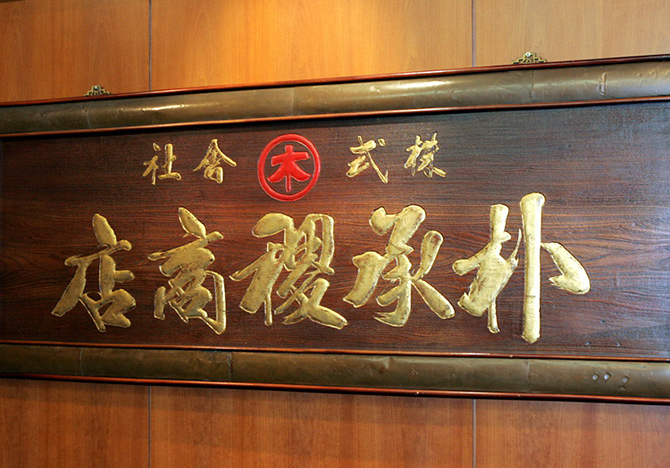 株式 木 會社
朴承稷商店